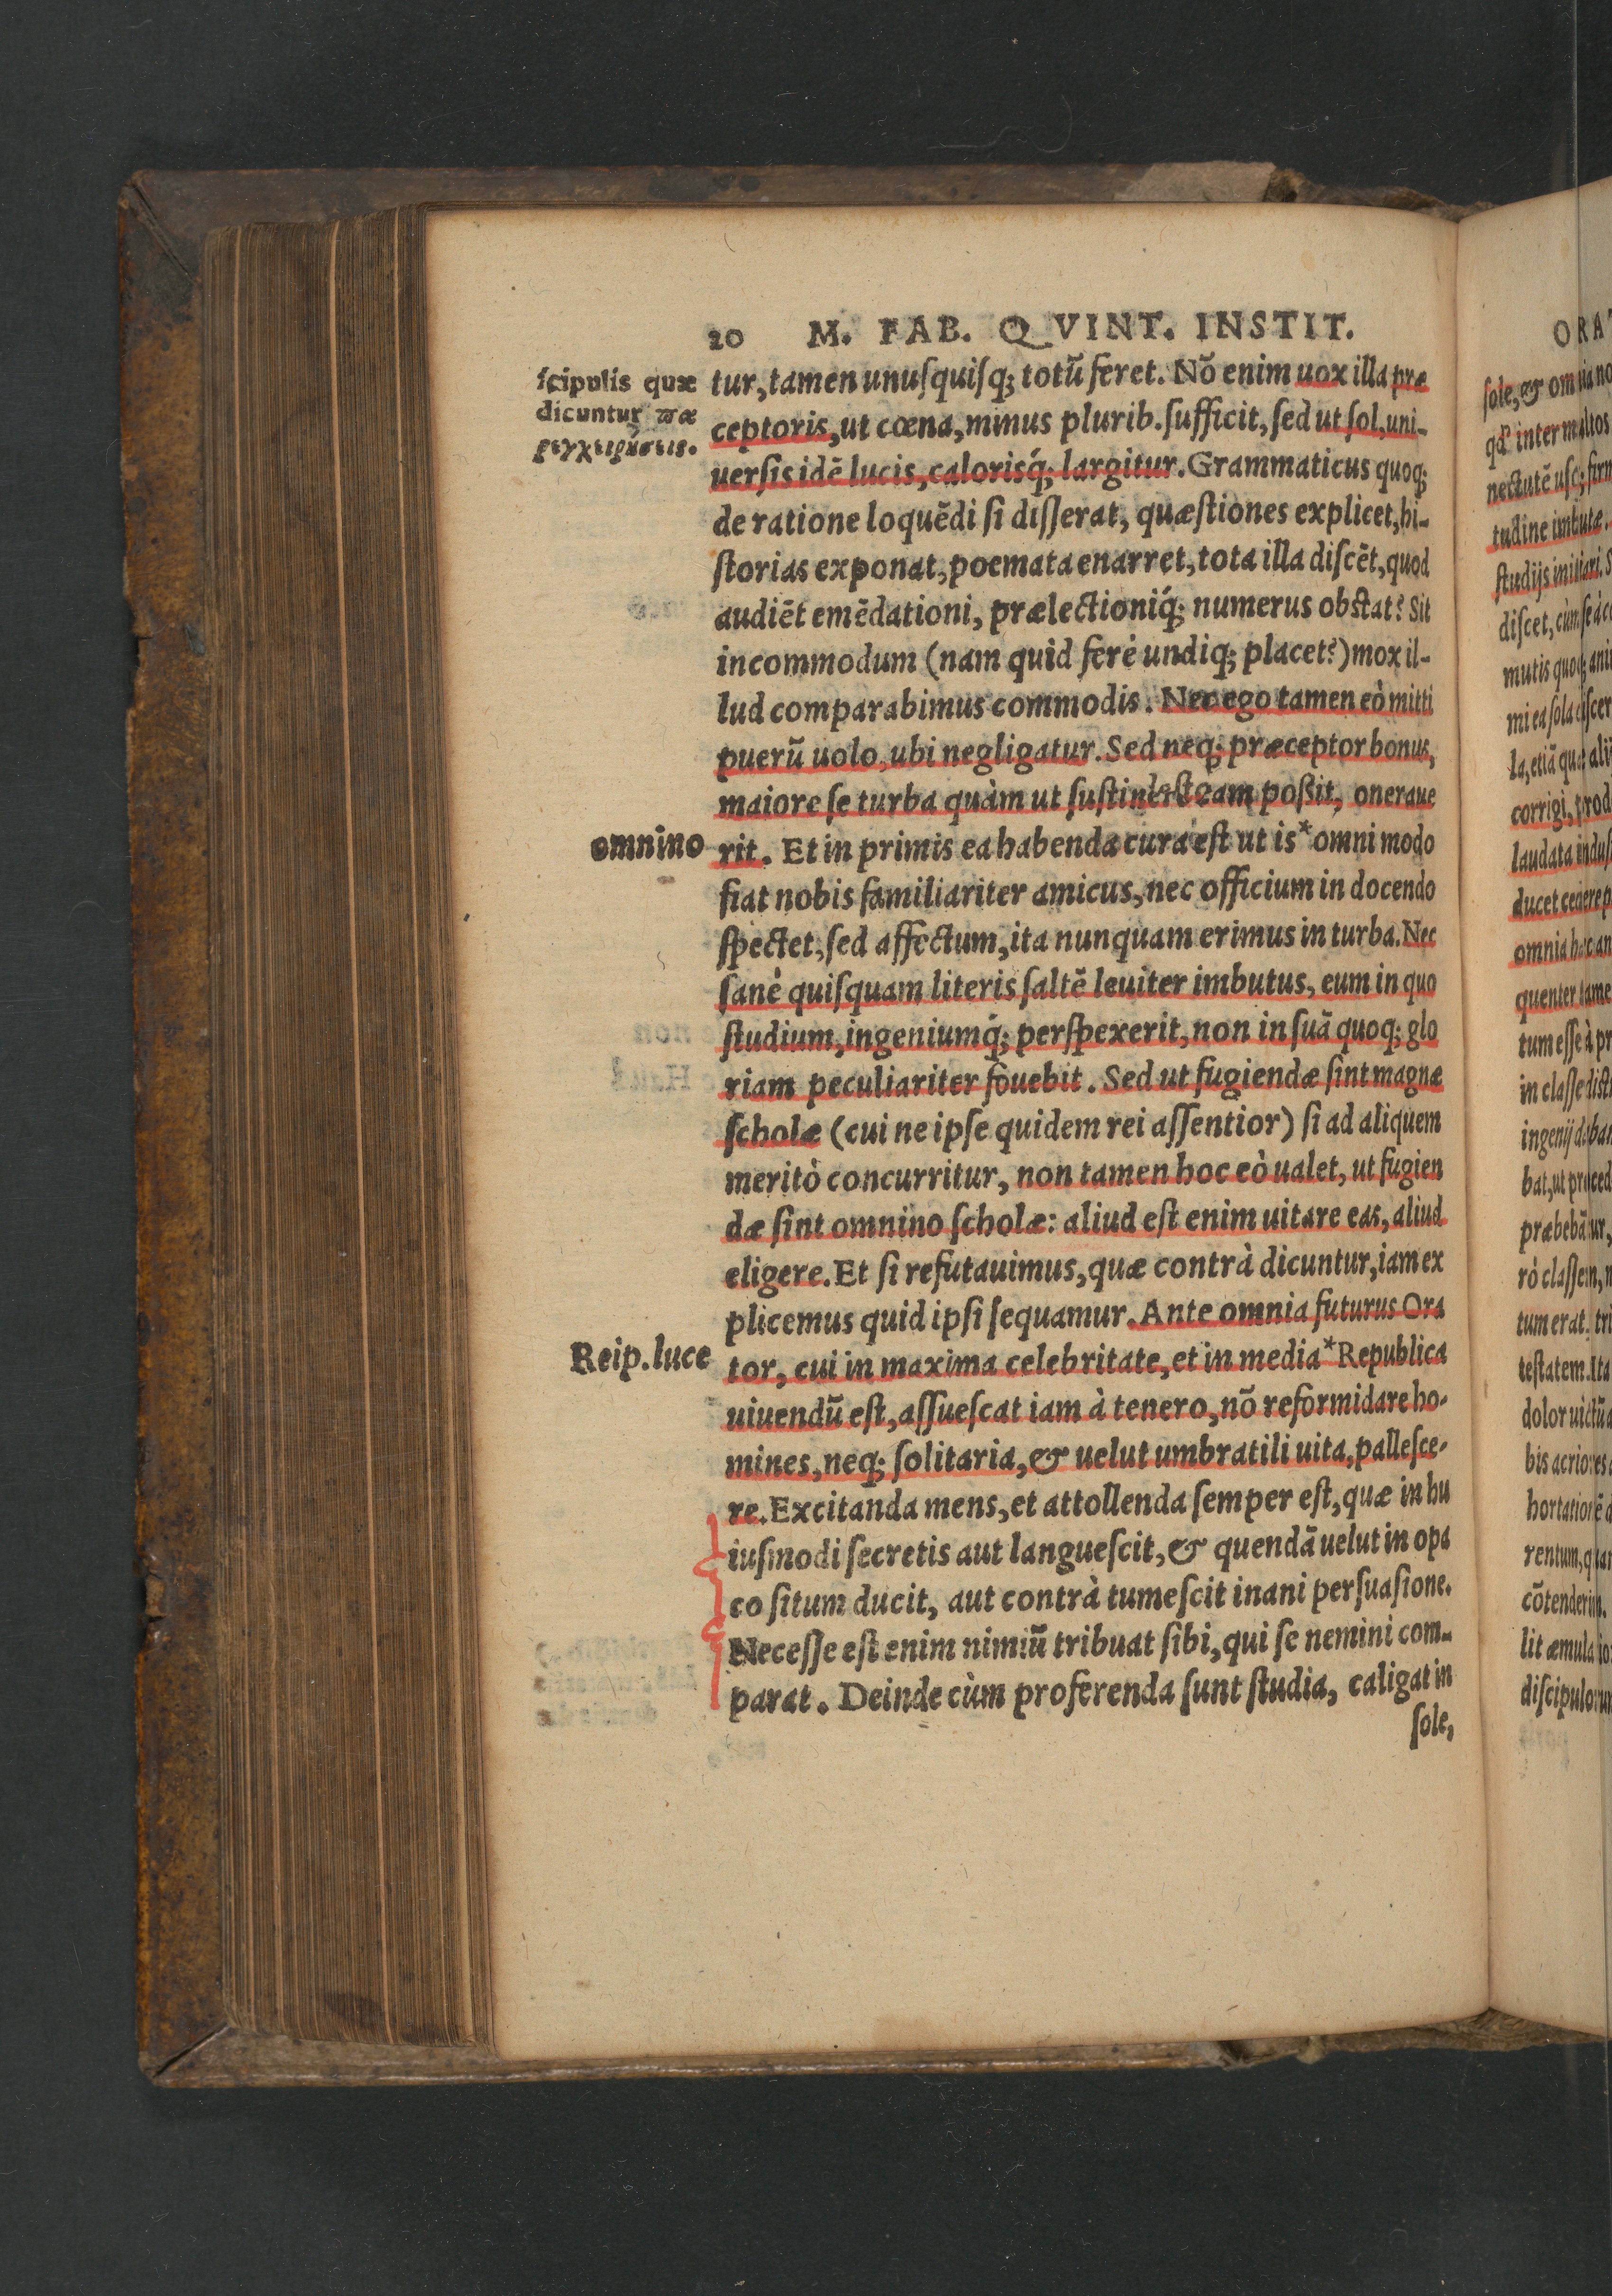 20 M. FAB. QVINT. INSTIT.
ſcipulis quæ
dicuntur πα
ρεγχειρήσεις.
tur, tamen unuſquiſq; totũ feret. Nõ enim uox illa præ
ceptoris, ut cœna, minus plurib. ſufficit, ſed ut ſol, uni-
uerſis idẽ lucis, caloriſq́; largitur. Grammaticus quoq;
de ratione loquẽdi ſi diſſerat, quæſtiones explicet, hi-
ſtorias exponat, poemata enarret, tota illa diſcẽt, quod
audiẽt emẽdationi, prælectioniq́; numerus obſtat? Sit
incommodum (nam quid ferè undiq; placet?) mox il-
lud comparabimus commodis. Nec ego tamen eò mitti
puerũ uolo, ubi negligatur. Sed neq; præceptor bonus,
maiore ſe turba quàm ut ſuſtinere eam poßit, oneraue
omnino
rit. Et in primis ea habenda cura eſt ut is * omni modo
fiat nobis familiariter amicus, nec officium in docendo
ſpectet, ſed affectum, ita nunquam erimus in turba. Nec
ſanè quiſquam literis ſaltẽ leuiter imbutus, eum in quo
ſtudium, ingeniumq́; perſpexerit, non in ſuã quoq; glo
riam peculiariter fouebit. Sed ut fugiendæ ſint magnæ
ſcholæ (cui ne ipſe quidem rei aſſentior) ſi ad aliquem
meritò concurritur, non tamen hoc eò ualet, ut fugien
dæ ſint omnino ſcholæ: aliud eſt enim uitare eas, aliud
eligere. Et ſi refutauimus, quæ contrà dicuntur, iam ex
plicemus quid ipſi ſequamur. Ante omnia futurus Ora
Reip. luce
tor, cui in maxima celebritate, et in media * Republica
uiuendũ eſt, aſſueſcat iam à tenero, nõ reformidare ho-
mines, neq; ſolitaria, & uelut umbratili uita, palleſce-
re. Excitanda mens, et attollenda ſemper eſt, quæ in hu
iuſmodi ſecretis aut langueſcit, & quendã uelut in opa
co ſitum ducit, aut contrà tumeſcit inani perſuaſione.
Neceſſe eſt enim nimiũ tribuat ſibi, qui ſe nemini com-
parat. Deinde cùm proferenda ſunt ſtudia, caligat in
ſole,